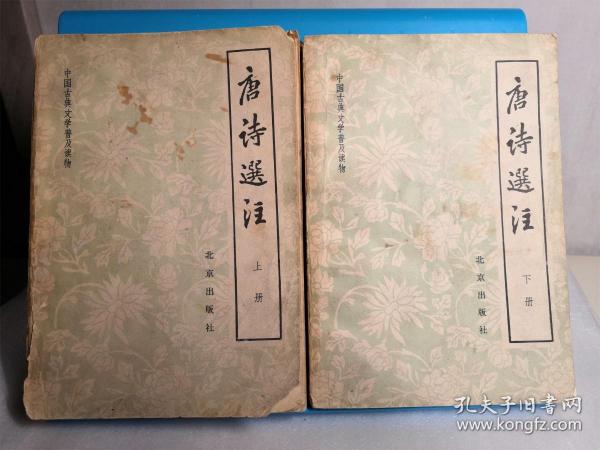 唐诗選注
上册
中国古典文学普及读物
北京出版社
唐诗選注
下册
中国古典文学普及读物
北京出版社
孔夫子旧书网
www.kongfz.com